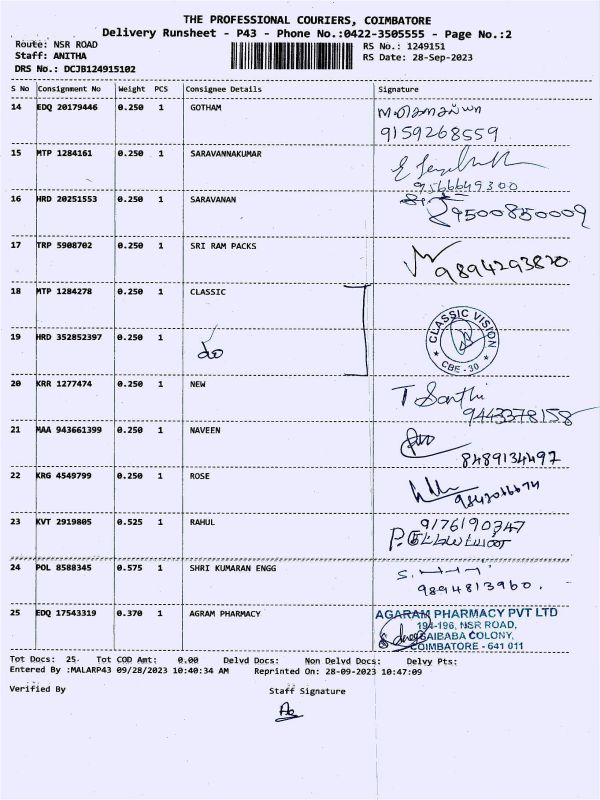 THE PROFESSIONAL COURIERS, COIMBATORE
Delivery Runsheet - P43 - Phone No.:0422-3505555 - Page No.:2
Route: NSR ROAD RS No.: 1249151
Staff: ANITHA RS Date: 28-Sep-2023
DRS No.: DCJB124915102
S No Consignment No Weight PCS Consignee Details Signature
14 EDQ 20179446 0.250 1 GOTHAM
9159268559
15 MTP 1284161 0.250 1 SARAVANNAKUMAR
9566649300
16 HRD 20251553 0.250 1 SARAVANAN
9500850009
17 TRP 5908702 0.250 1 SRI RAM PACKS
9894293820
18 MTP 1284278 0.250 1 CLASSIC
CLASSIC VISION
CBE - 30
19 HRD 352852397 0.250 1 do
20 KRR 1277474 0.250 1 NEW
T Santhi
9443378158
21 MAA 943661399 0.250 1 NAVEEN
8489134497
22 KRG 4549799 0.250 1 ROSE
23 KVT 2919805 0.525 1 RAHUL
9176190347
24 POL 8588345 0.575 1 SHRI KUMARAN ENGG
9894813960.
25 EDQ 17543319 0.370 1 AGRAM PHARMACY
AGARAM PHARMACY PVT LTD
194-196, NSR ROAD,
SAIBABA COLONY,
COIMBATORE - 641 011
Tot Docs: 25 Tot COD Amt: 0.00 Delvd Docs: Non Delvd Docs: Delvy Pts:
Entered By :MALARP43 09/28/2023 10:40:34 AM Reprinted On: 28-09-2023 10:47:09
Verified By Staff Signature